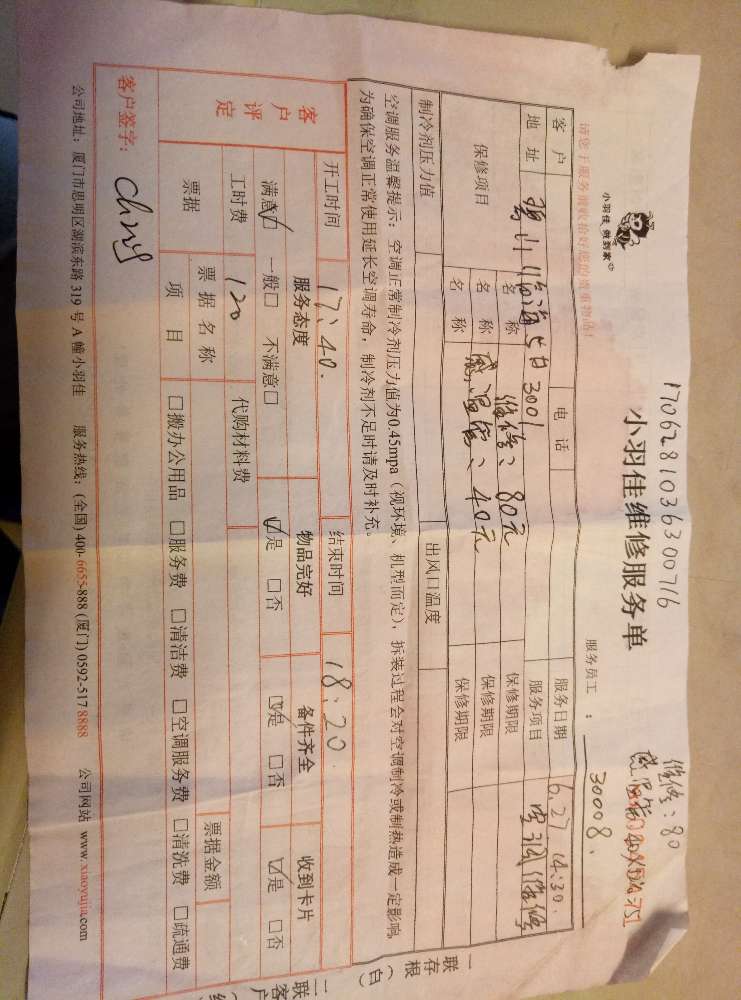 17062810363007​16
维修：80
小羽佳 做到家
小羽佳维修服务单
请您于服务前收拾好您的贵重物品！
服务员工：30008.
客户
电话
服务日期 6.27 14:30.
地址 3001
服务项目 空调维修
保修项目
名称 维修：80元
保修期限
名称 感温管：40元
保修期限
名称
保修期限
制冷剂压力值
出风口温度
空调服务温馨提示：空调正常制冷剂压力值为0.45mpa（视环境、机型而定），拆装过程会对空调制冷或制热造成一定影响，
为确保空调正常使用延长空调寿命，制冷剂不足时请及时补充。
开工时间 17:40.
结束时间 18:20
客户评定
服务态度
物品完好
备件齐全
收到卡片
满意☑ 一般□ 不满意□
☑是 □否
☑是 □否
☑是 □否
工时费 120
代购材料费
票据
票据名称
票据金额
项目
□搬办公用品 □服务费 □清洁费 □空调服务费 □清洗费 □疏通费
客户签字：
公司地址：厦门市思明区湖滨东路 319 号 A 幢小羽佳 服务热线：(全国) 400-6655-888 (厦门) 0592-517 8888 公司网站 www.xiaoyujia.com
一联存根（白）
二联客户